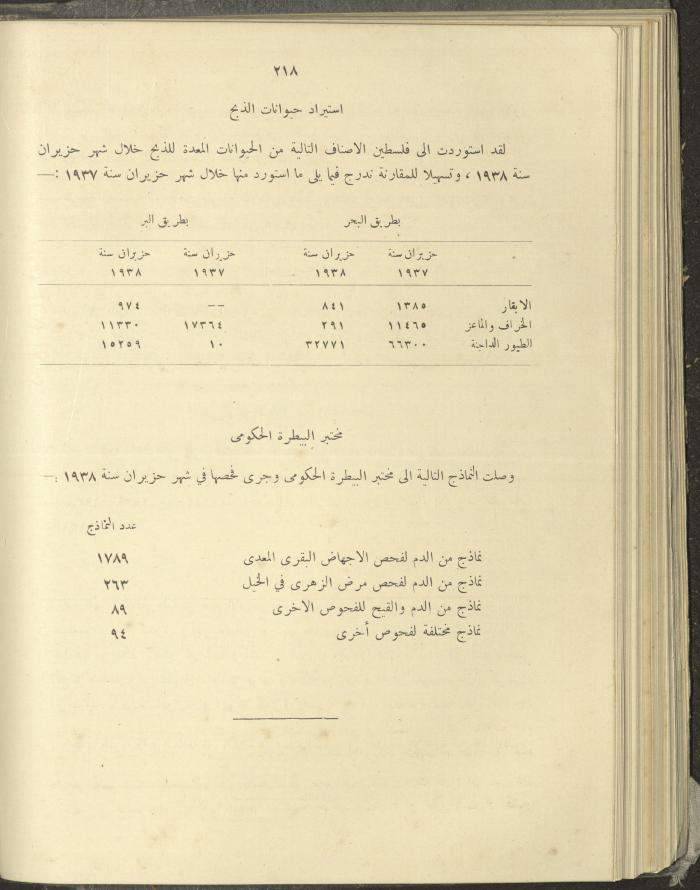 ٢١٨
استيراد حيوانات الذبح
لقد استوردت الى فلسطين الاصناف التالية من الحيوانات المعدة للذبح خلال شهر حزيران
سنة ١٩٣٨ ، وتسهيلا للمقارنة ندرج فيما يلى ما استورد منها خلال شهر حزيران سنة ١٩٣٧ :—
بطريق البحر بطريق البر
حزيران سنة حزيران سنة حزيران سنة حزيران سنة
١٩٣٧ ١٩٣٨ ١٩٣٧ ١٩٣٨
الابقار ١٣٨٥ ٨٤١ -- ٩٧٤
الخراف والماعز ١١٤٦٥ ٢٩١ ١٧٣٦٤ ١١٣٣٠
الطيور الداجنة ٦٦٣٠٠ ٣٢٧٧١ ١٠ ١٥٢٥٩
مختبر البيطرة الحكومى
وصلت النماذج التالية الى مختبر البيطرة الحكومى وجرى فحصها في شهر حزيران سنة ١٩٣٨ :—
عدد النماذج
نماذج من الدم لفحص الاجهاض البقرى المعدى ١٧٨٩
نماذج من الدم لفحص مرض الزهرى في الخيل ٢٦٣
نماذج من الدم والقيح للفحوص الاخرى ٨٩
نماذج مختلفة لفحوص أخرى ٩٤